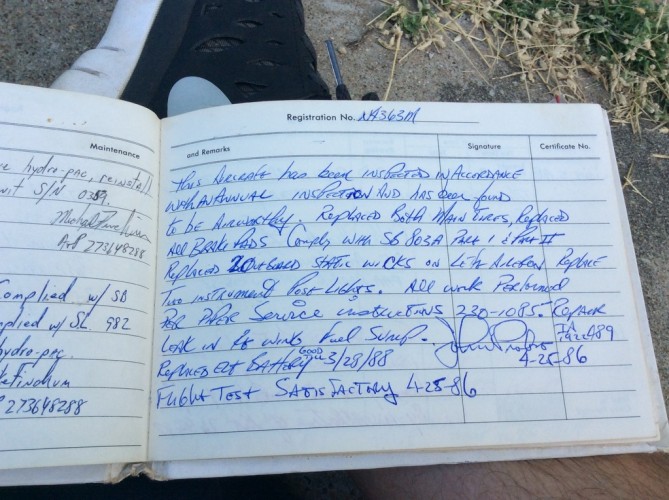 Maintenance
hydro-pac reinstall
S/N 0359.
A+P 273648288
Complied w/ SB
w/ SL 982
hydro-pac
273648288
Registration No. N4363M
and Remarks
Signature
Certificate No.
This Aircraft has been inspected in Accordance
with An Annual inspection And has been found
to be Airworthy. Replaced Both Main Tires, Replaced
All Brake Pads Comply with SB 803A Part I & Part II
Replaced 2 outboard static wicks on Left Aileron Replace
Two instrument Post Lights. All work Performed
Per Piper Service instructions 230-1085. Repair
Leak in Rt wing Fuel Sump.
IA
Replaced ELT Battery Good until 3/28/88
4-25-86
Flight Test Satisfactory 4-25-86